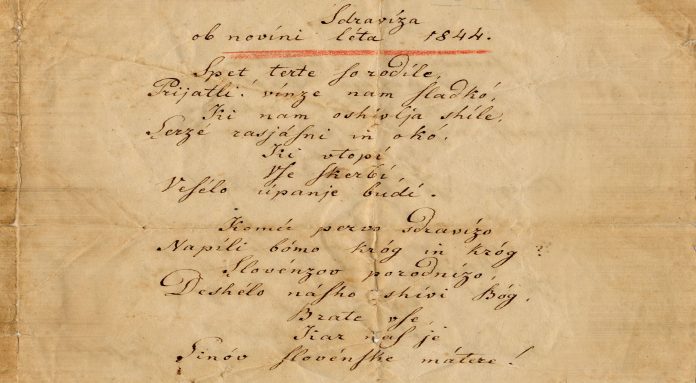 Sdravíza
ob novíni léta 1844.
Spet terte so rodíle,
Prijatli! vínze nam sladkó,
Ki nam oshivlja shíle,
Serzé rasjásni in okó,
Ki vtopí
Vse skerbí,
Vesélo úpanje budí.
Komú pervo sdravízo
Napíli bómo króg in króg?
Slovénzov porodnízo,
Deshélo násho shívi Bóg,
Brate vse,
Kar nas je
Sinóv slovénske mátere!